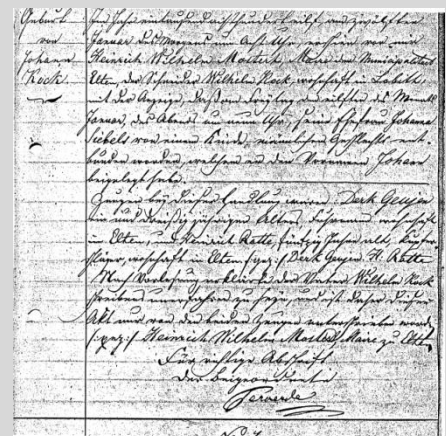 Geburt
von
Johann
Kock
Im Jahr eintausend achthundert eilf am zwölften
Januar des Morgens um Acht Uhr, erschien vor mir
Heinrich Wilhelm Mottert, Maire der Municipalität
Elten, der Schneider Wilhelm Kock, wohnhaft in Lobith,
mit der Anzeige, daß am Freytag den eilften des Monats
Januar, des Abends um neun Uhr, seine Ehefrau Johanna
Sibels von einem Kinde, männlichen Geschlechts ent-
bunden worden, welchem er den Vornamen Johann
beigelegt habe.
Zeugen bey dieser Handlung waren: Derk Geujen
ein und dreißig jährigen Alters, Fuhrmann wohnhaft
in Elten, und Heinrich Ratte, fünfzig Jahre alt, Kupfer-
schläger, wohnhaft in Elten /:gez:/ Derk Geujen H. Ratte
Nach Vorlesung erklärte der Vater Wilhelm Kock
Schreibens unerfahren zu seyn, und ist daher dieser
Akt nur von den beiden Zeugen unterschrieben worden
/:gez:/ Heinrich Wilhelm Mottert Maire zu Elten.
Für richtige Abschrift
Der Beigeordnete